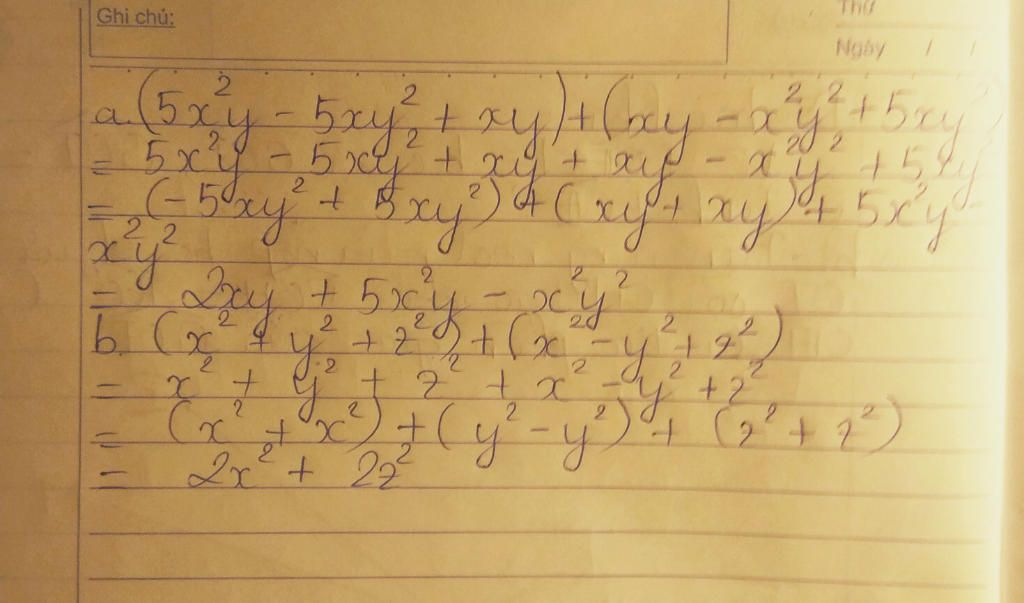 Ghi chú:
Thứ
Ngày / /
a. (5x²y - 5xy² + xy) + (xy - x²y² + 5xy²)
= 5x²y - 5xy² + xy + xy - x²y² + 5xy²
= (-5xy² + 5xy²) + (xy + xy) + 5x²y -
x²y²
= 2xy + 5x²y - x²y²
b. (x² + y² + z²) + (x² - y² + z²)
= x² + y² + z² + x² - y² + z²
= (x² + x²) + (y² - y²) + (z² + z²)
= 2x² + 2z²